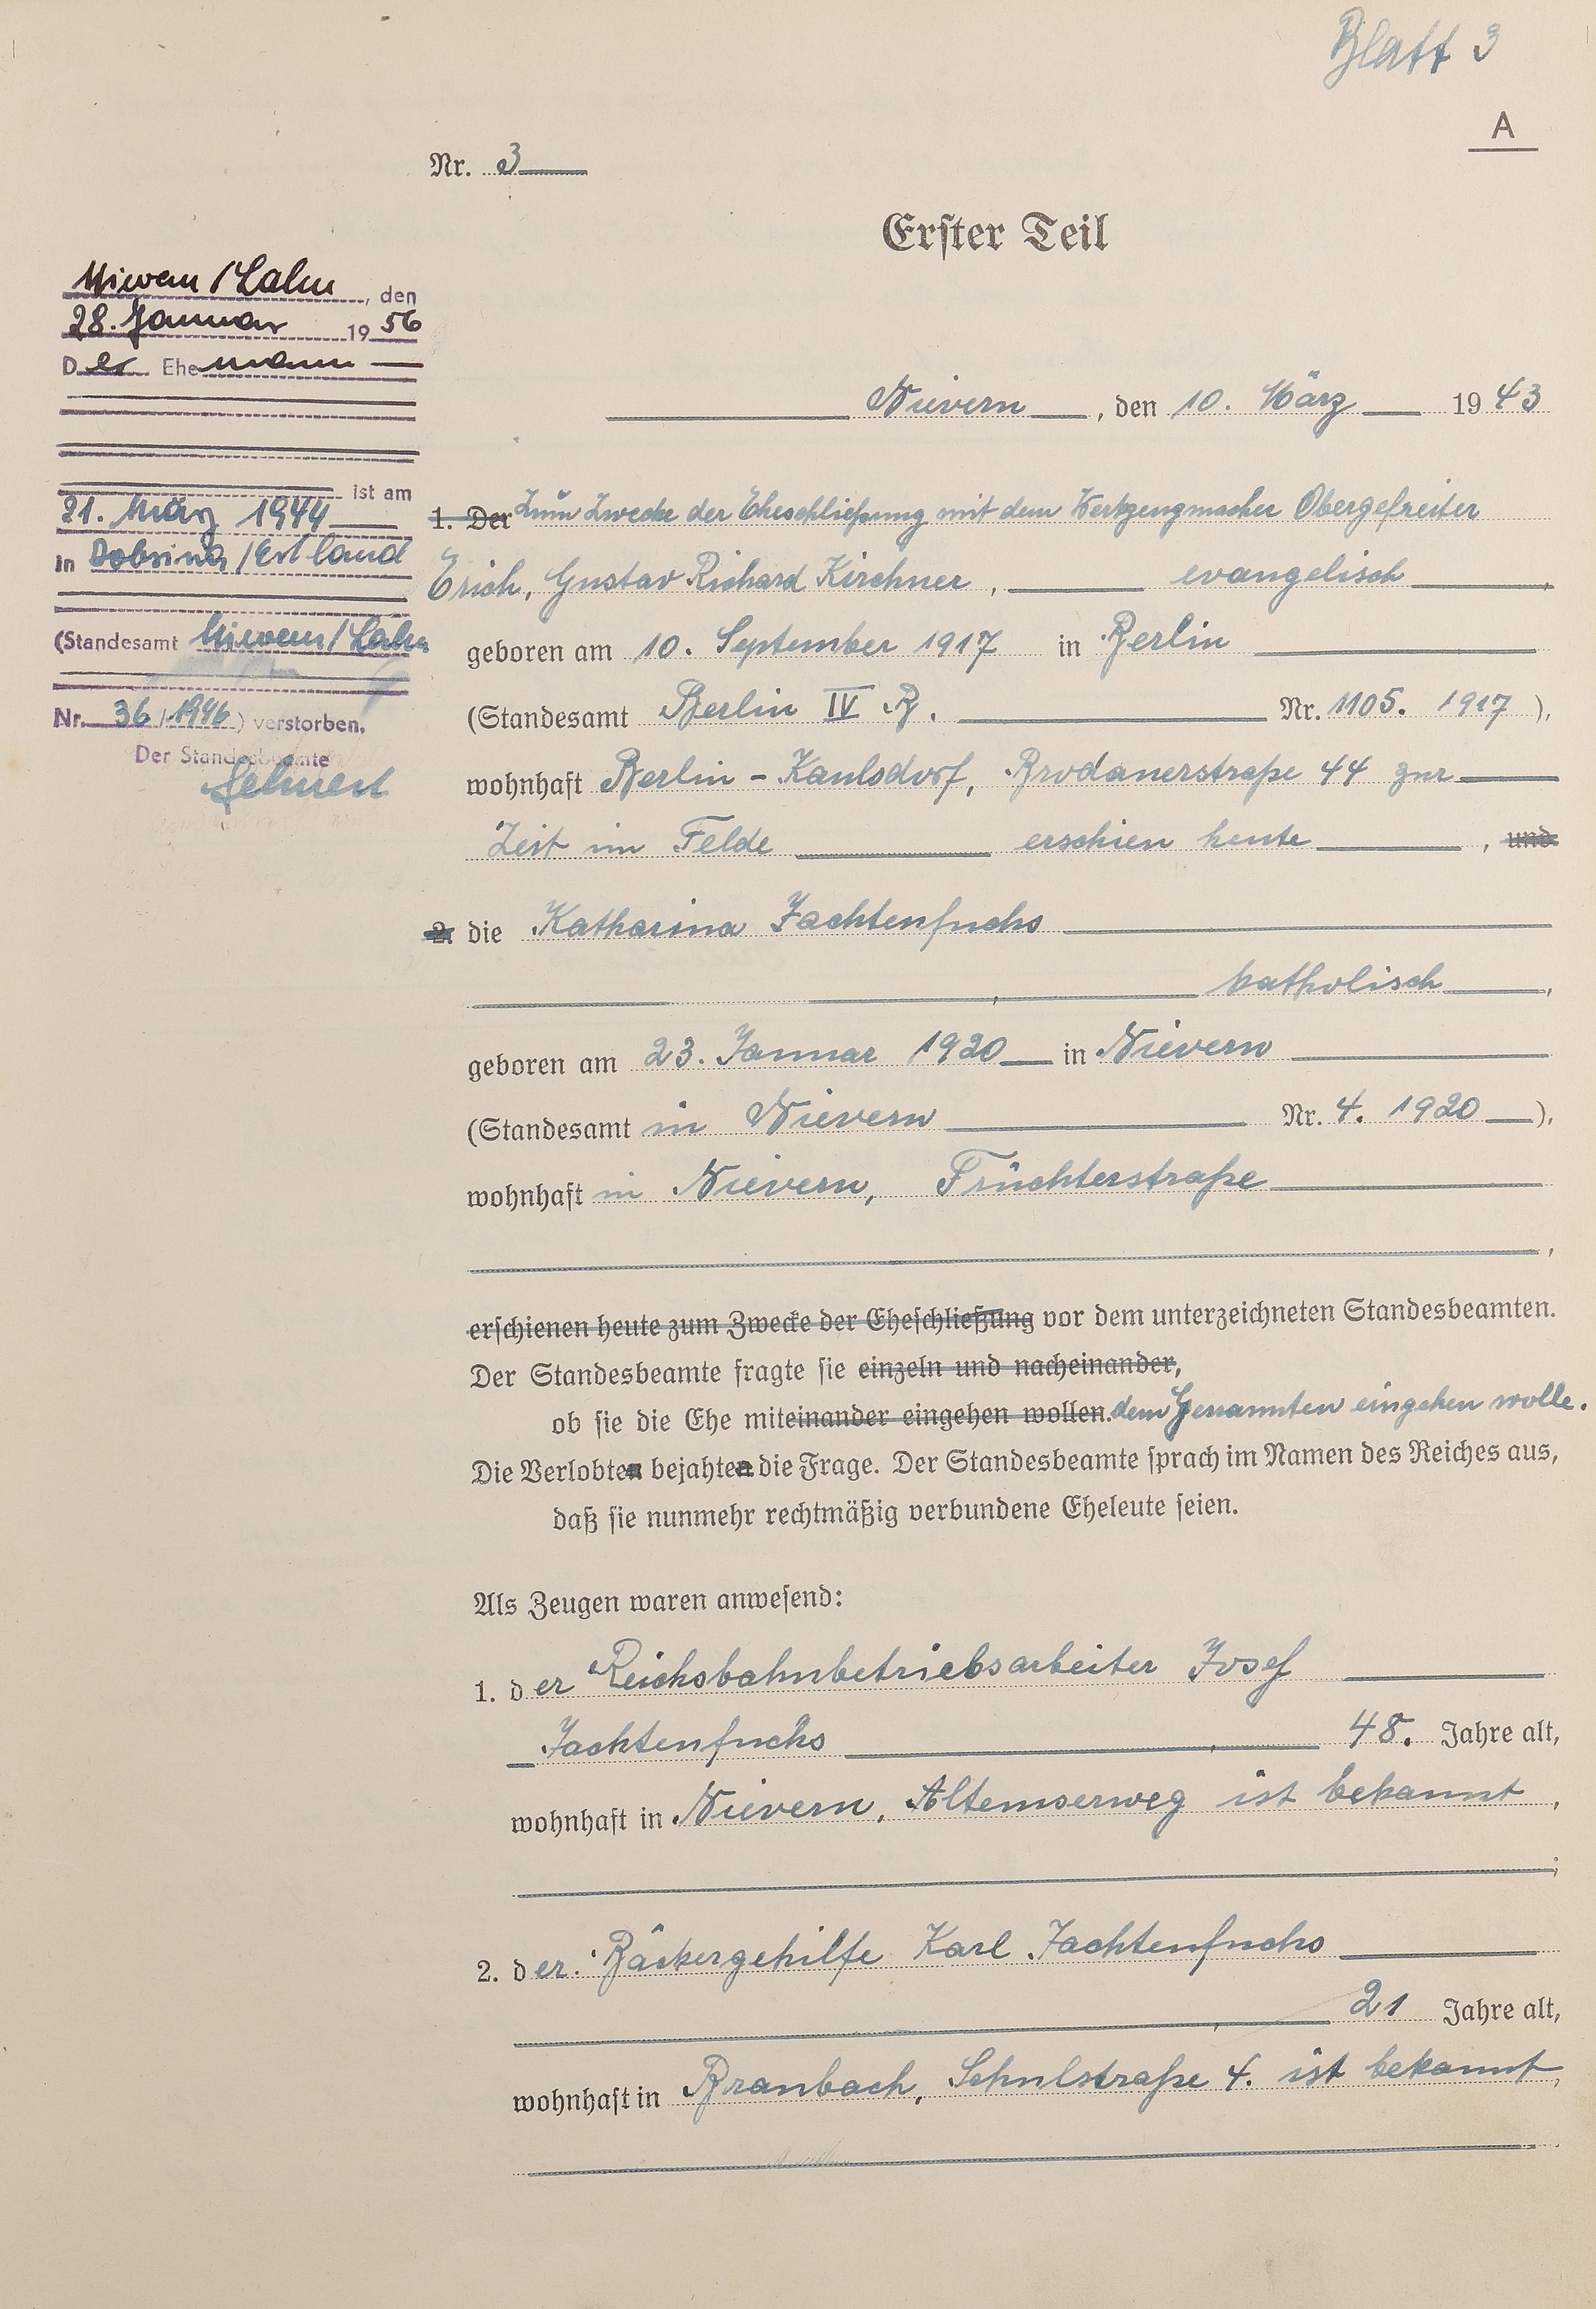 Blatt 3
A
Nr. 3
Erster Teil
Nievern / Lahn, den
28. Januar 1956
Der Ehemann
ist am
21. März 1944
in Dobsina / Estland
(Standesamt Nievern / Lahn
Nr. 36 / 1946) verstorben.
Der Standesbeamte
Nievern, den 10. März 1943
1. Der Zum Zwecke der Eheschließung mit dem Werkzeugmacher Obergefreiter
Erich, Gustav Richard Kirchner, evangelisch,
geboren am 10. September 1917 in Berlin
(Standesamt Berlin IV B. Nr. 1105. 1917),
wohnhaft Berlin - Kaulsdorf, Brodauerstraße 44 zur
Zeit im Felde erschien heute, und
2. die Katharina Jachtenfuchs
, katholisch,
geboren am 23. Januar 1920 in Nievern
(Standesamt in Nievern Nr. 4. 1920),
wohnhaft in Nievern, Früchterstraße
,
erschienen heute zum Zwecke der Eheschließung vor dem unterzeichneten Standesbeamten.
Der Standesbeamte fragte sie einzeln und nacheinander,
ob sie die Ehe miteinander eingehen wollen. dem Genannten eingehen wolle.
Die Verlobten bejahten die Frage. Der Standesbeamte sprach im Namen des Reiches aus,
daß sie nunmehr rechtmäßig verbundene Eheleute seien.
Als Zeugen waren anwesend:
1. der Reichsbahnbetriebsarbeiter Josef
Jachtenfuchs, 48. Jahre alt,
wohnhaft in Nievern, Altemserweg ist bekannt,
;
2. der Bäckergehilfe Karl Jachtenfuchs
, 21 Jahre alt,
wohnhaft in Braubach, Schulstraße 4. ist bekannt,